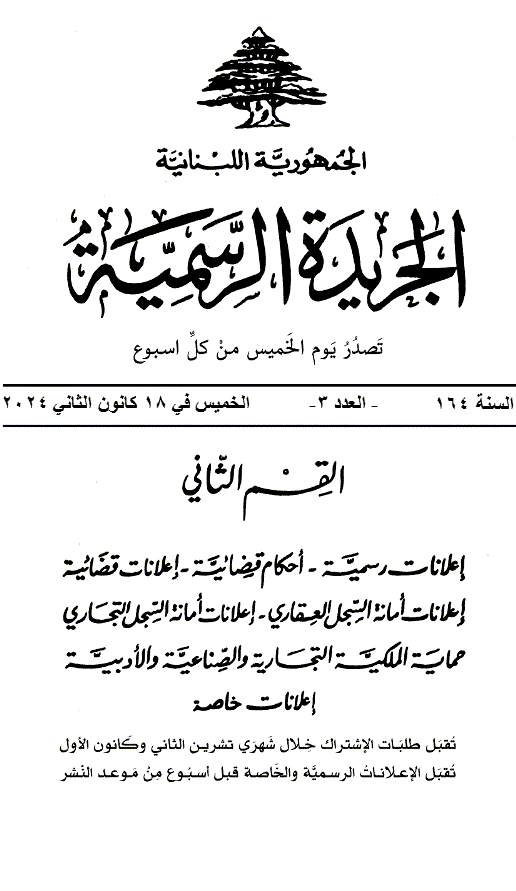 الجُمهُوريَّة اللبْنانيَّة
الجَريدَة الرسَّمِيَّة
تَصدُرُ يَوم الخَميس منْ كلِّ اسبوع
السنة ١٦٤ - العدد ٣- الخميس في ١٨ كانون الثاني ٢٠٢٤
القِسْم الثّاني
إعلانات رسميَّة - أحكام قضائيَّة - إعلانات قضائية
إعلانات أمانة السِّجل العقاري - إعلانات أمانة السِّجل التجاري
حماية الملكيَّة التجارية والصِّناعيَّة والأدبيَّة
إعلانات خاصة
تُقبَل طلبَات الإشتراك خِلال شَهرَي تشرين الثاني وكَانون الأول
تُقبَل الإعلاناتُ الرسميَّة والخَاصة قبل أسبُوع مِنْ مَوعد النَشر